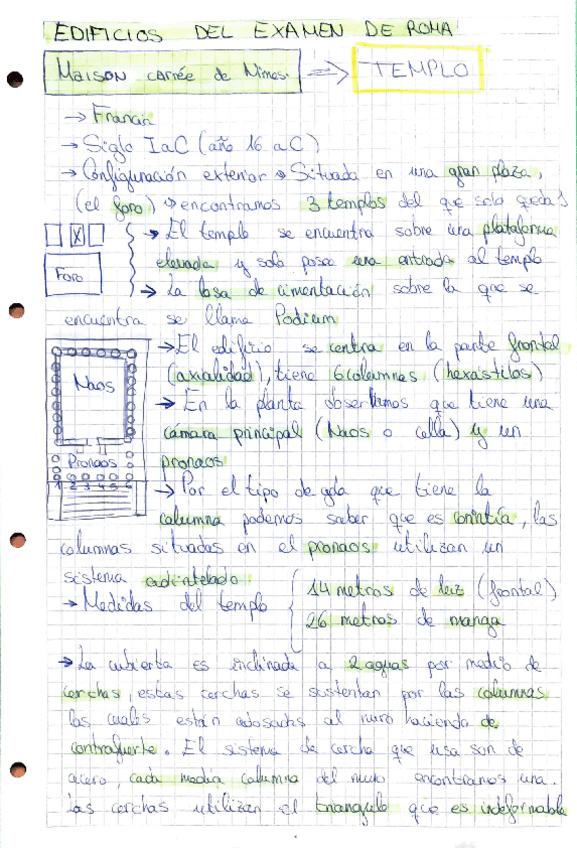 EDIFICIOS DEL EXAMEN DE ROMA
MAISON carrée de Nimes. ⇒ TEMPLO
→ Francia
→ Siglo I a C (año 16 a C)
→ Configuración exterior → Situada en una gran plaza,
(el foro) → encontramos 3 templos del que solo queda 1
→ El templo se encuentra sobre una plataforma
elevada y solo posee una entrada al templo
Foro
→ La losa de cimentación sobre la que se
encuentra se llama Podium
→ El edificio se centra en la parte frontal
(axialidad), tiene 6 columnas (hexástilos)
Naos
→ En la planta observamos que tiene una
cámara principal (Naos o cella) y un
pronaos
Pronaos
1 2 3 4 5 6
→ Por el tipo de que tiene la
columna podemos saber que es corintia, las
columnas situadas en el pronaos utilizan un
sistema adintelado.
→ Medidas del templo
14 metros de luz (frontal)
26 metros de manga
→ La cubierta es inclinada a 2 aguas por medio de
cerchas, estas cerchas se sustentan por las columnas
las cuales están adosadas al muro haciendo de
contrafuerte. El sistema de cercha que usa son de
acero, cada media columna del muro encontramos una.
Las cerchas utilizan el triangulo que es indeformable